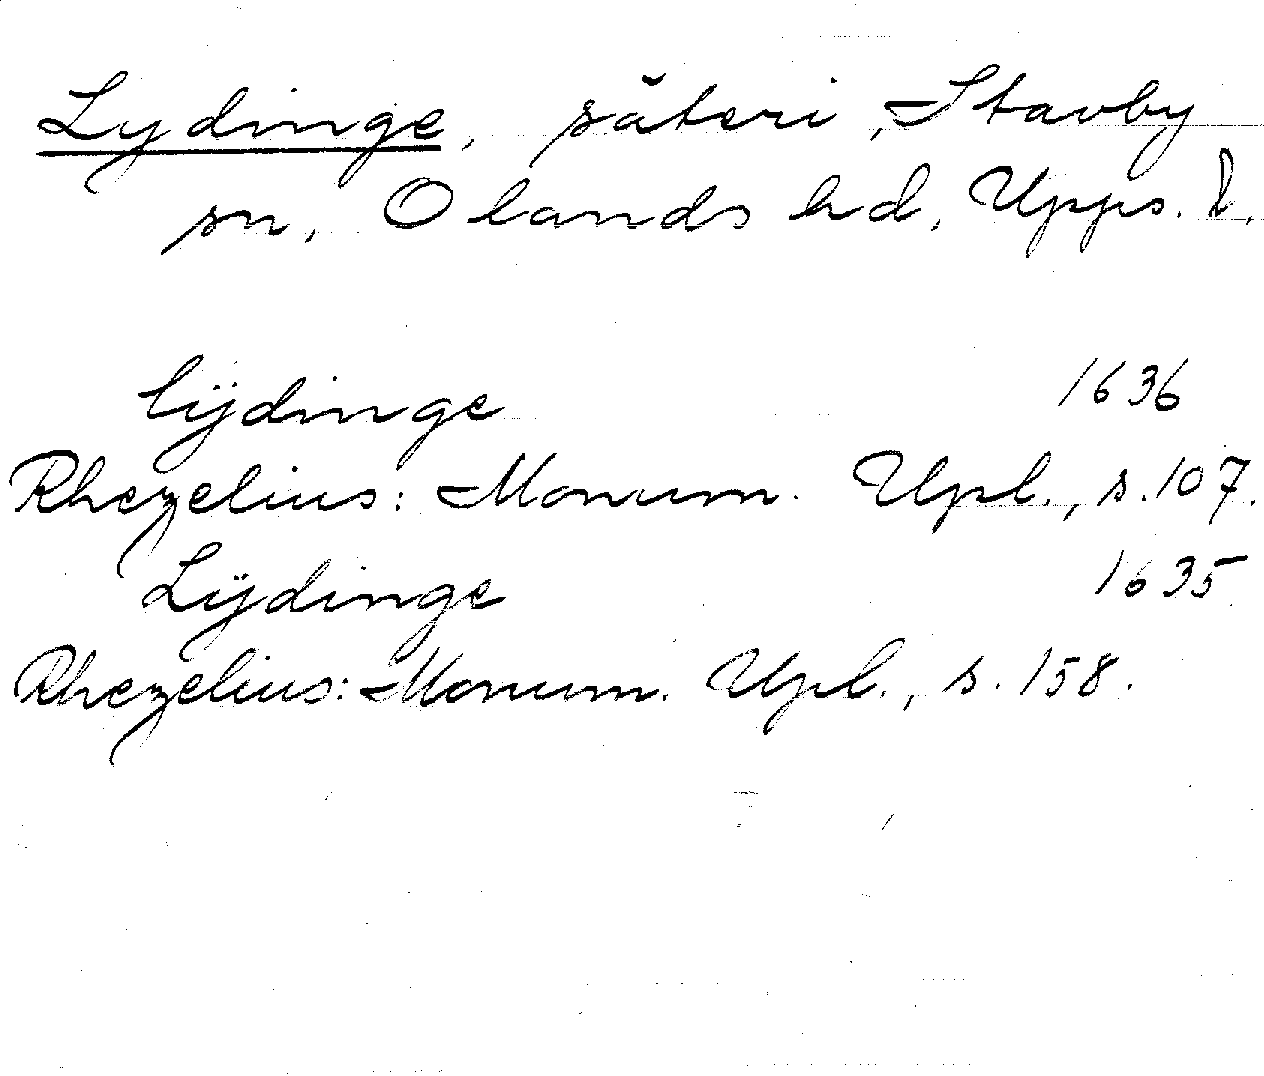 Lydinge, säteri, Stavby
sn, Olands hd, Upps. l.
lÿdinge 1636
Rhezelius: Monum. Upl., s. 107.
Lÿdinge 1635
Rhezelius: Monum. Upl., s. 158.